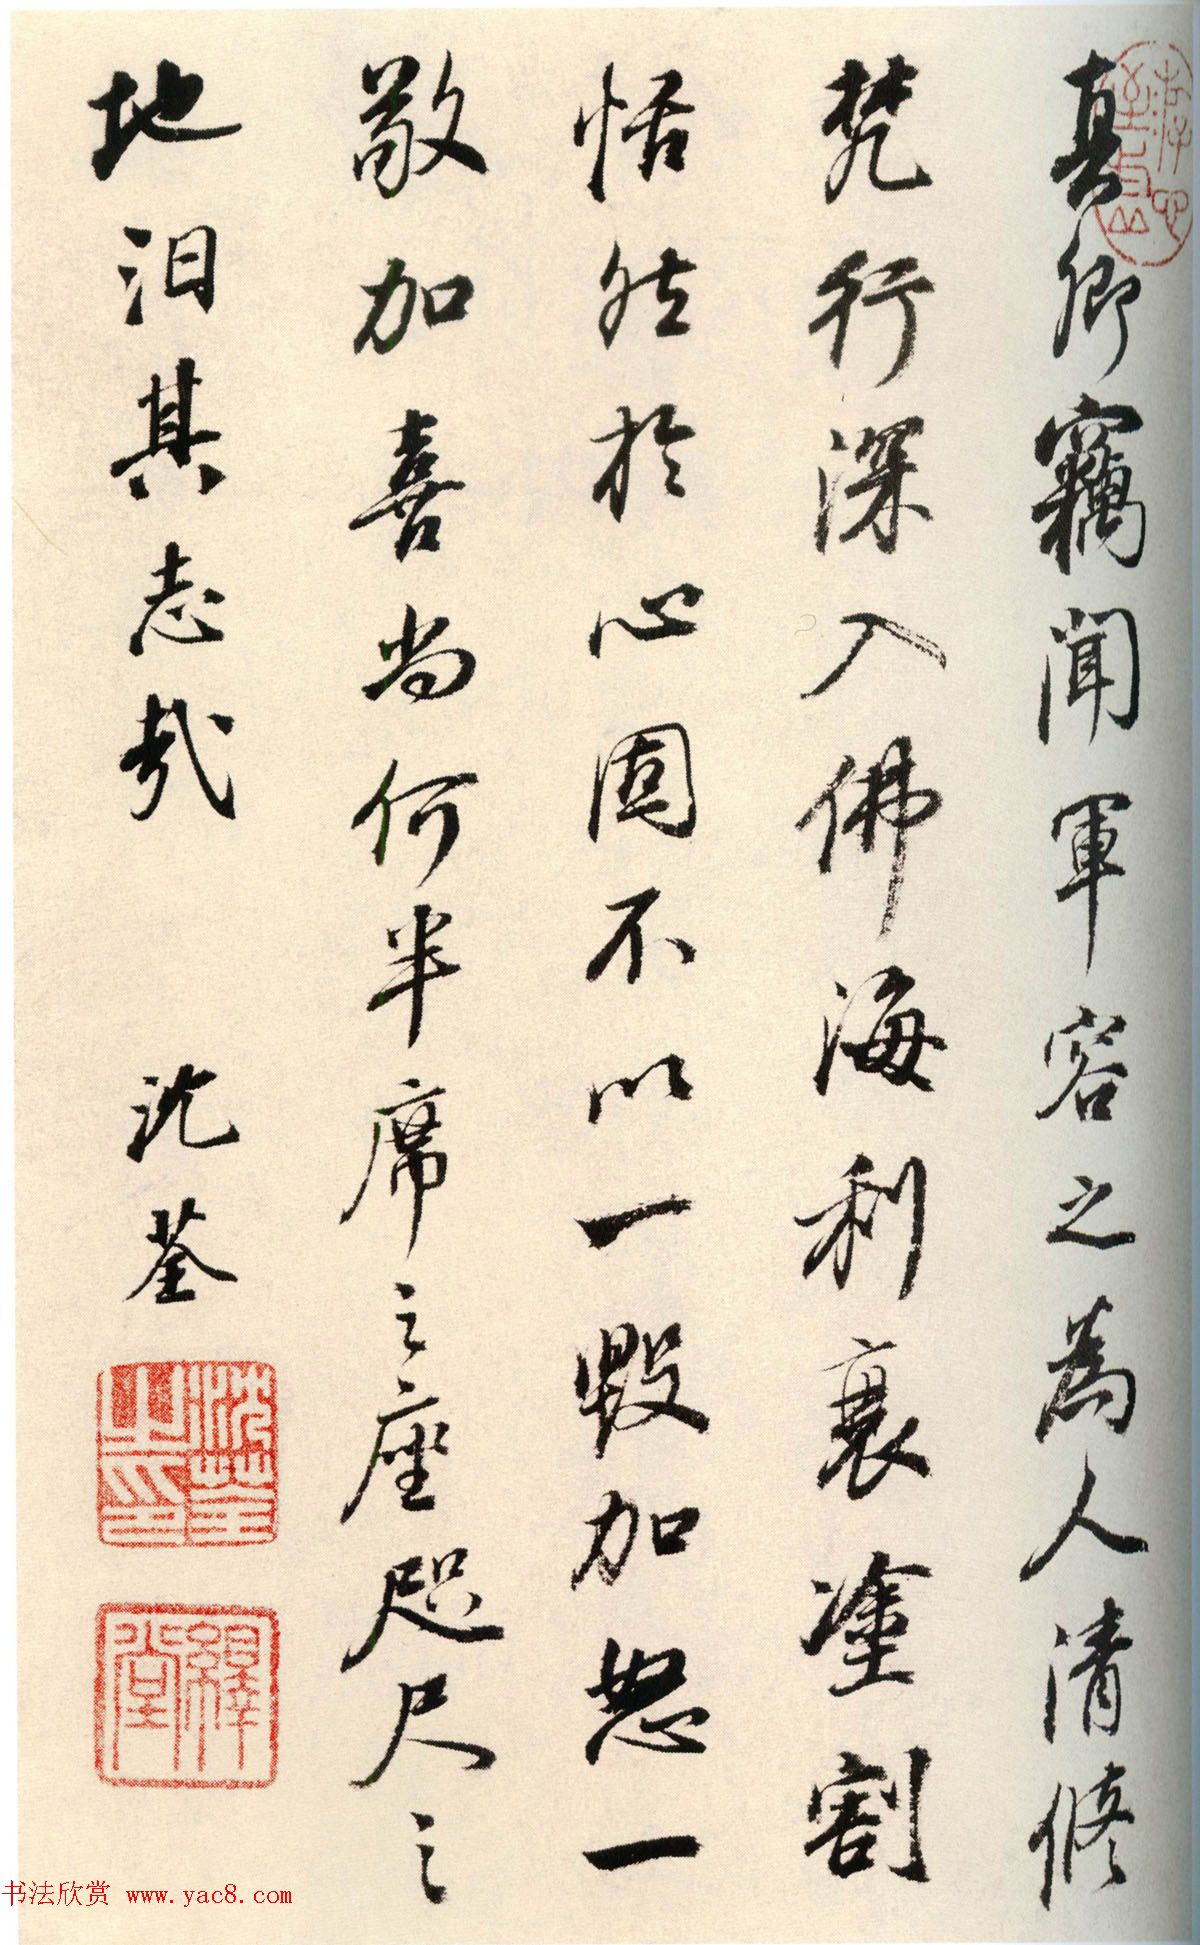 真卿竊聞軍容之為人清修
梵行深入佛海利衰塗割
恬然於心固不以一毀加怒一
敬加喜尚何半席之座咫尺之
地汨其志哉
沈荃
沈荃之印
繹堂
书法欣赏 www.yac8.com